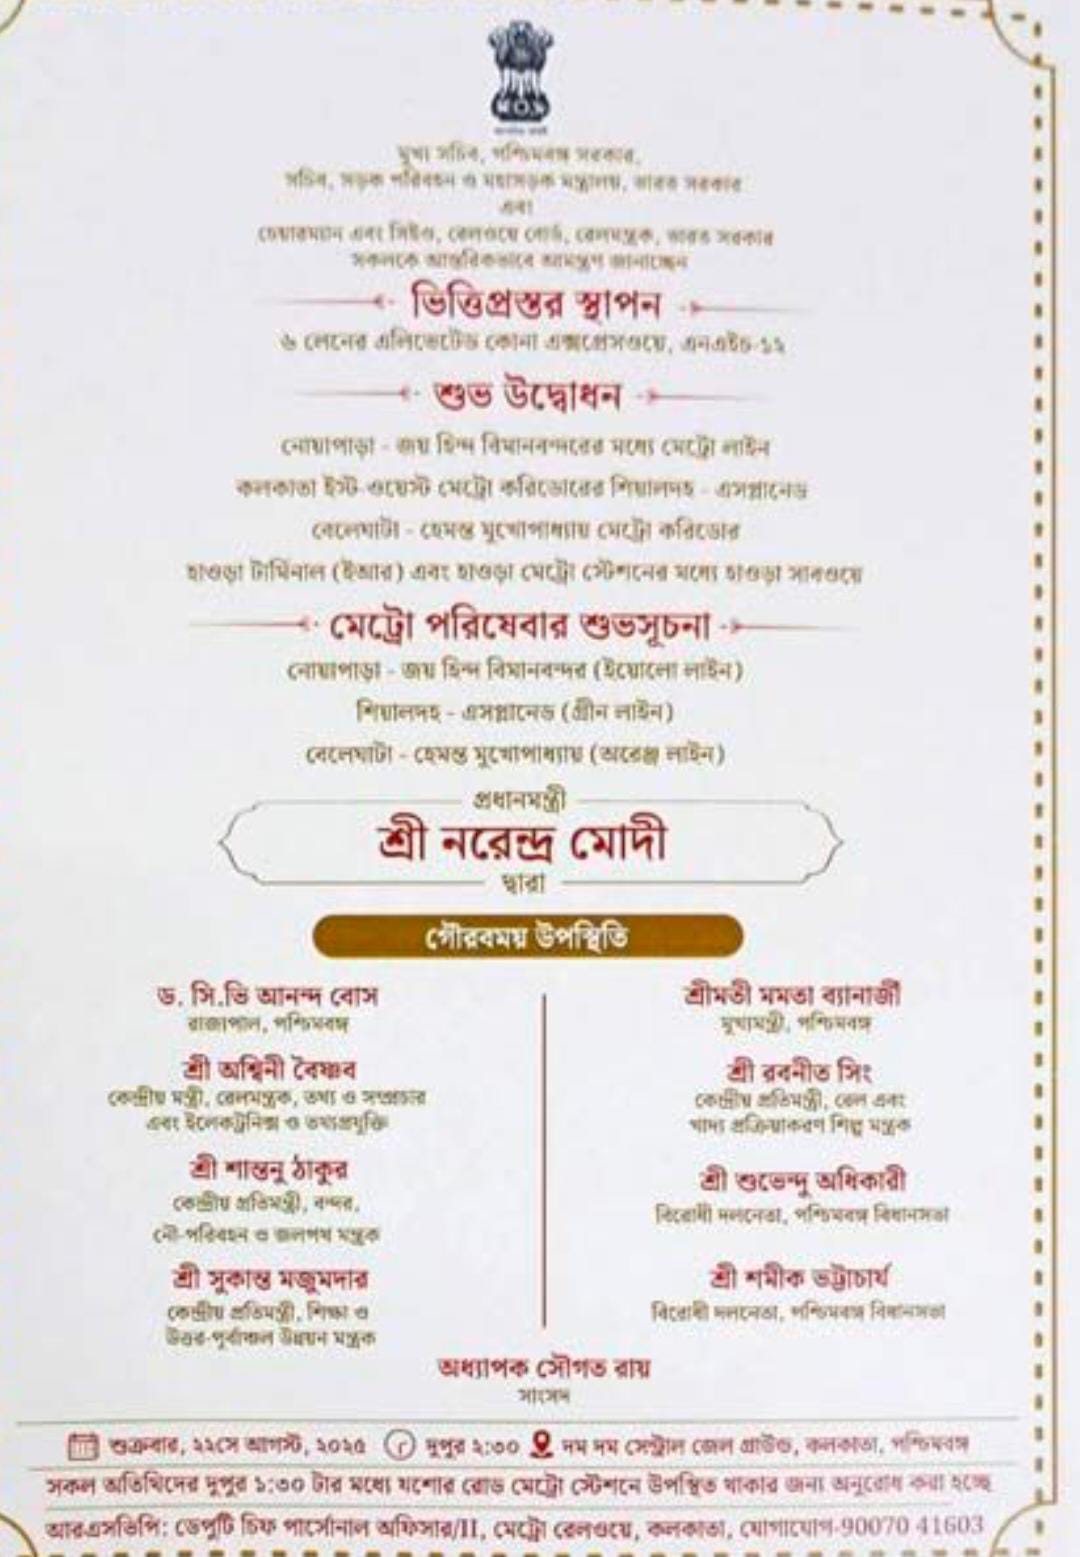 মুখ্য সচিব, পশ্চিমবঙ্গ সরকার,
সচিব, সড়ক পরিবহন ও মহাসড়ক মন্ত্রালয়, ভারত সরকার
এবং
চেয়ারম্যান এবং সিইও, রেলওয়ে বোর্ড, রেলমন্ত্রক, ভারত সরকার
সকলকে আন্তরিকভাবে আমন্ত্রণ জানাচ্ছেন
ভিত্তিপ্রস্তর স্থাপন
৬ লেনের এলিভেটেড কোনা এক্সপ্রেসওয়ে, এনএইচ-১২
শুভ উদ্বোধন
নোয়াপাড়া - জয় হিন্দ বিমানবন্দরের মধ্যে মেট্রো লাইন
কলকাতা ইস্ট-ওয়েস্ট মেট্রো করিডোরের শিয়ালদহ - এসপ্লানেড
বেলেঘাটা - হেমন্ত মুখোপাধ্যায় মেট্রো করিডোর
হাওড়া টার্মিনাল (ইআর) এবং হাওড়া মেট্রো স্টেশনের মধ্যে হাওড়া সাবওয়ে
মেট্রো পরিষেবার শুভসূচনা
নোয়াপাড়া - জয় হিন্দ বিমানবন্দর (ইয়োলো লাইন)
শিয়ালদহ - এসপ্লানেড (গ্রীন লাইন)
বেলেঘাটা - হেমন্ত মুখোপাধ্যায় (অরেঞ্জ লাইন)
প্রধানমন্ত্রী
শ্রী নরেন্দ্র মোদী
দ্বারা
গৌরবময় উপস্থিতি
ড. সি.ভি আনন্দ বোস
রাজ্যপাল, পশ্চিমবঙ্গ
শ্রী অশ্বিনী বৈষ্ণব
কেন্দ্রীয় মন্ত্রী, রেলমন্ত্রক, তথ্য ও সম্প্রচার
এবং ইলেকট্রনিক্স ও তথ্যপ্রযুক্তি
শ্রী শান্তনু ঠাকুর
কেন্দ্রীয় প্রতিমন্ত্রী, বন্দর,
নৌ-পরিবহন ও জলপথ মন্ত্রক
শ্রী সুকান্ত মজুমদার
কেন্দ্রীয় প্রতিমন্ত্রী, শিক্ষা ও
উত্তর-পূর্বাঞ্চল উন্নয়ন মন্ত্রক
শ্রীমতী মমতা ব্যানার্জী
মুখ্যমন্ত্রী, পশ্চিমবঙ্গ
শ্রী রবনীত সিং
কেন্দ্রীয় প্রতিমন্ত্রী, রেল এবং
খাদ্য প্রক্রিয়াকরণ শিল্প মন্ত্রক
শ্রী শুভেন্দু অধিকারী
বিরোধী দলনেতা, পশ্চিমবঙ্গ বিধানসভা
শ্রী শমীক ভট্টাচার্য
বিরোধী দলনেতা, পশ্চিমবঙ্গ বিধানসভা
অধ্যাপক সৌগত রায়
সাংসদ
শুক্রবার, ২২সে আগস্ট, ২০২৫ দুপুর ২:৩০ দম দম সেন্ট্রাল জেল গ্রাউন্ড, কলকাতা, পশ্চিমবঙ্গ
সকল অতিথিদের দুপুর ১:৩০ টার মধ্যে যশোর রোড মেট্রো স্টেশনে উপস্থিত থাকার জন্য অনুরোধ করা হচ্ছে
আরএসভিপি: ডেপুটি চিফ পার্সোনাল অফিসার/II, মেট্রো রেলওয়ে, কলকাতা, যোগাযোগ-90070 41603